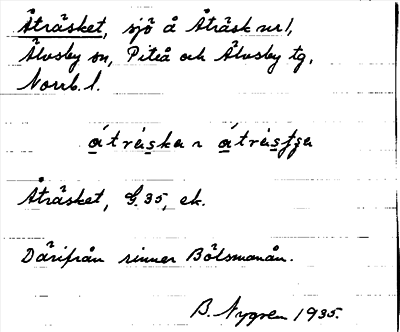 Åträsket, sjö å Åträsk nr 1,
Älvsby sn, Piteå och Älvsby tg,
Norrb. l.
Åträsket, G. 35, ek.
Därifrån rinner Bölsmanån.
B. Nygren 1935.